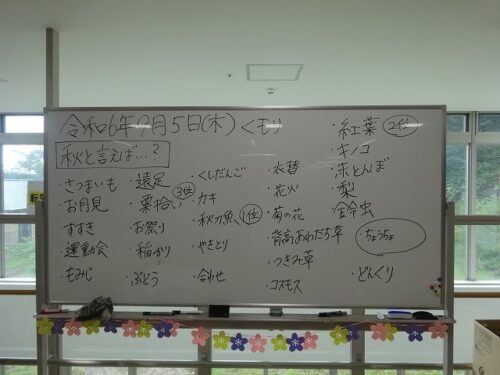 令和6年9月5日(木) くもり
秋と言えば…?
・さつまいも
・お月見
・すすき
・運動会
・もみじ
・遠足
・栗拾い 3位
・お祭り
・稲かり
・ぶどう
・くしだんご
・カキ
・秋刀魚 1位
・やきとり
・合わせ
・衣替
・花火
・菊の花
・背高あわだち草
・つきみ草
・コスモス
・紅葉 2位
・キノコ
・赤とんぼ
・梨
・鈴虫
・ちょうちょ
・どんぐり